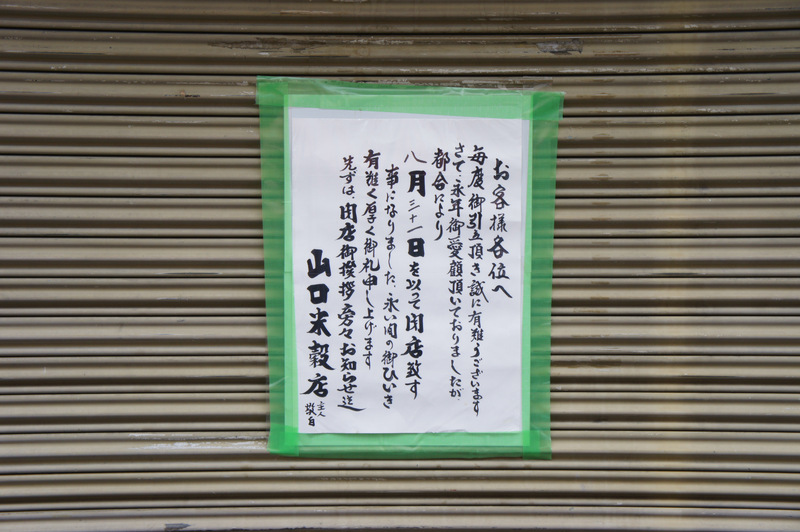 お客様各位へ
毎度御引立頂き誠に有難うございます
さて、永年御愛顧頂いておりましたが、
都合により
八月三十一日を以って閉店致す
事になりました、永い間の御ひいき
有難く厚く御礼申し上げます
先ずは、閉店御挨拶旁々お知らせ迄
山口米穀店
主人
敬白